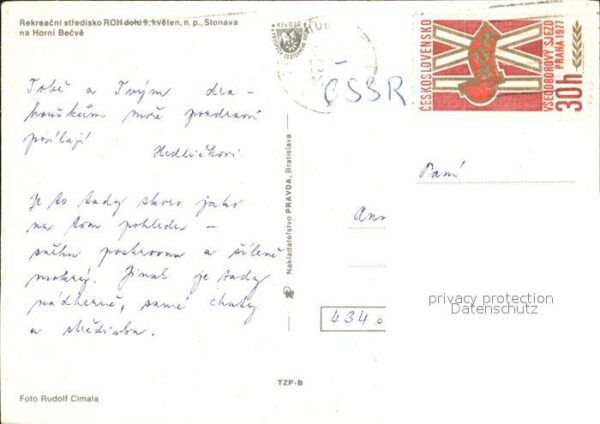 Rekreační středisko ROH dolu 9. květen, n. p., Stonava
na Horní Bečvě
Tobě a Tvým dra-
houškům moc pozdravů
posílají
Hrdličkovi
Je to tady skoro jako
na tom pohledu -
sněhu poskrovnu a šíleně
mokrý. Jinak je tady
nádherně, samé chaty
a střediska.
Foto Rudolf Cimala
Nakladateľstvo PRAVDA, Bratislava
TZP-B
ČSSR
ČESKOSLOVENSKO
VŠEODBOROVÝ SJEZD
PRAHA 1977
30h
Paní
Ann
434 0
privacy protection
Datenschutz